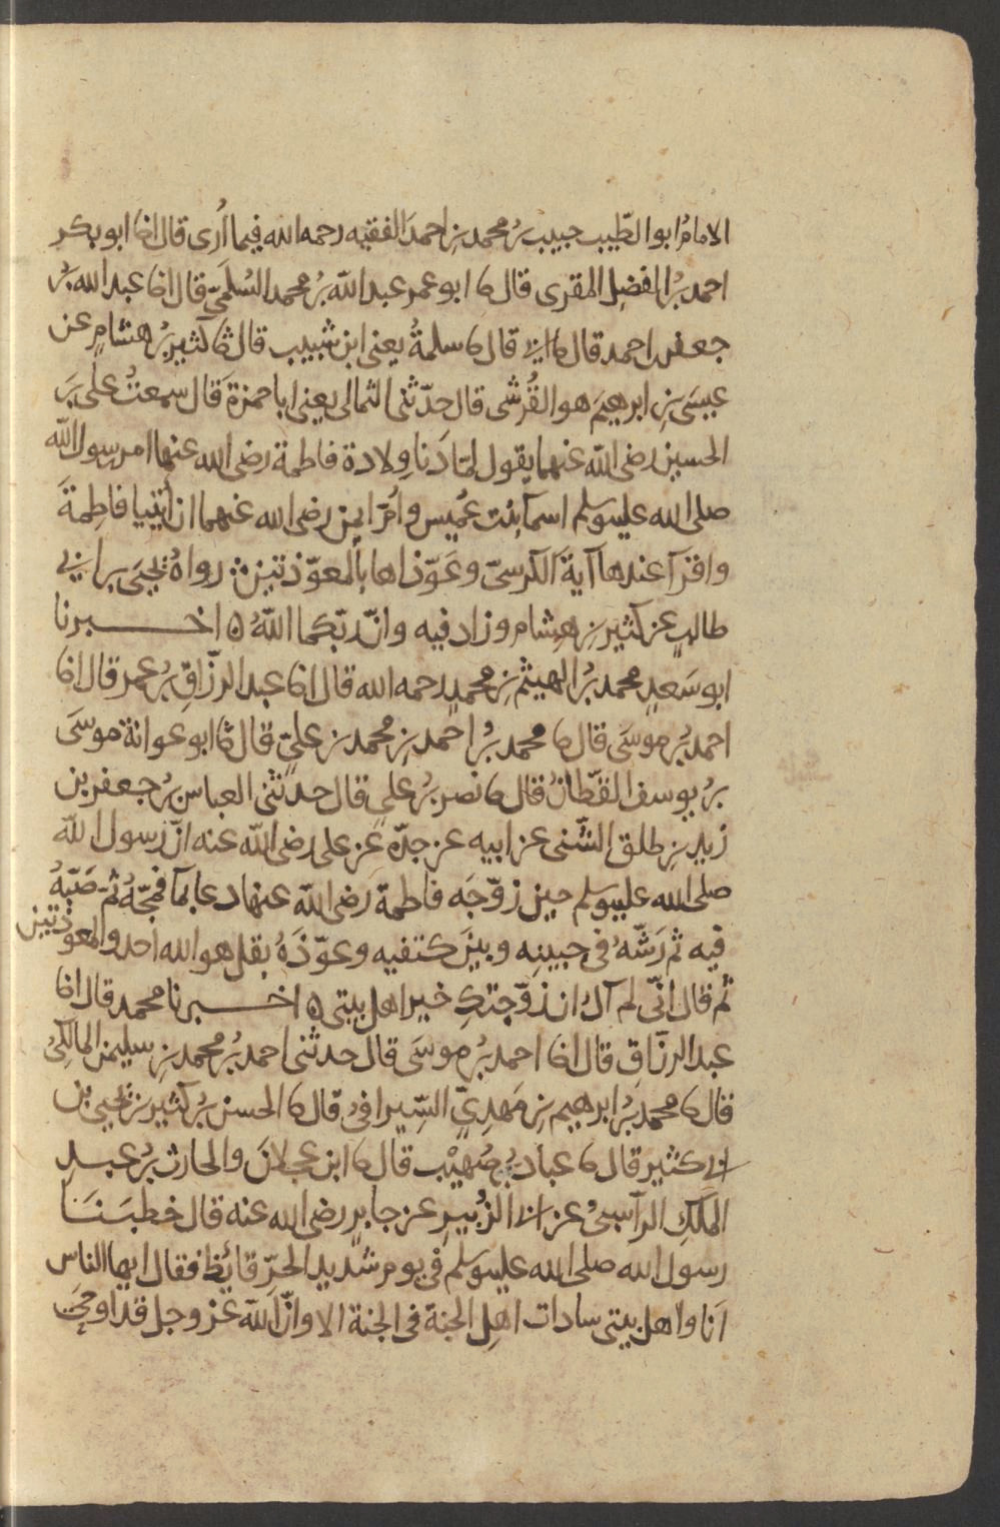 الامامُ ابوا الطّيب حبيب بنُ محمد بنِ احمدَ الفقيه رحمه الله فيما اُرى قال انا ابو بكر
احمد بنُ المفضلِ المقرى قال نا ابو عمر عبد الله بنُ محمد السُلَمىّ قال انا عبد الله بنُ
جعفر احمد قال نا ابى قال نا سلمةُ يعنى ابن شبيب قال ثنا كثير بنُ هشامٍ عن
عيسَى بنِ ابرهيمَ هو القُرشى قال حدّثنى الثمالى يعنى ابا حمزةَ قال سمعتُ علىَ بنَ
الحسين رضى الله عنهما يقول لمّا دَنا وِلادة فاطمة رضى الله عنها امر رسول الله
صلى الله عليه وسلم اسمآ بنت عُمَيس واُمّ ايمن رضى الله عنهما ان ائتيا فاطِمةَ
واقرآ عندها آيةَ الكرسىّ وعَوّذاها بالمعوّذتين رواهُ يحيَى بن ابى
طالبٍ عن كثير بنِ هِشام وزاد فيه وانّ ربّكما اللهُ ه اخـــبرنا
ابو سَعيدٍ محمد بنُ الهيثم بنِ محمدٍ رحمه الله قال انا عبد الرزّاقِ بنُ عمر قال انا
احمد بنُ موسَى قال نا محمد بنُ احمد بنِ محمد بن علىٍ قال ثنا ابو عوانة موسَى
بنُ يوسف القطّانُ قال نا نصر بنُ علىٍ قال حدثنى العباس بنُ جعفر بن
زيد بنِ طلق الشَّنى عن ابيه عن جدّه عن على رضى الله عنه انّ رسول الله
صلى الله عليه وسلم حين زوّجَه فاطمة رضى الله عنها دعا بمآ فمجّهُ ثم صَبّهُ
فيه ثم رَشّهُ فى جبينِه وبينَ كتفيه وعوّذَهُ بقل هو الله احد والمعوذتين
ثم قال انّى لم آلُ ان زوّجتكِ خير اهل بيتى ه اخـــبرنا محمد قال انا
عبد الرزّاقِ قال انا احمد بنُ موسَى قال حدثنى احمد بنُ محمد بنِ سليمن المالكىُ
قال نا محمد بنُ ابرهيم بنِ مَهدِىٍّ السِّيرافىُ قال نا الحسن بنُ كثير بنِ يحيى بن
ابى كثير قال نا عباد بنُ صُهيْب قال نا ابن عجلانَ والحارث بنُ عبـدِ
الملكِ الرآسبىُ عن ابى الزُبيرِ عن جابرٍ رضى الله عنه قال خطبَـنَـا
رسول الله صلى الله عليه وسلم فى يوم شديد الحَرِّ قائظ فقال ايها الناس
اَنا واهل بيتى سادات اهل الجنة فى الجنة الا وانّ اللهَ عز وجل قد اوحَى